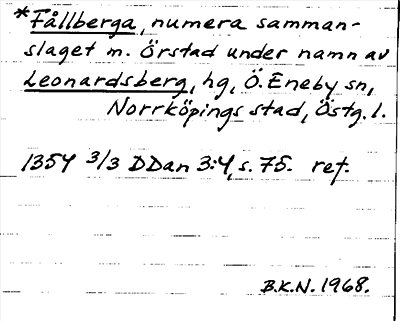 *Fållberga, numera samman-
slaget m. Örstad under namn av
Leonardsberg, hg, Ö. Eneby sn,
Norrköpings stad, Östg. l.
1354 3/3 DDan 3:4, s. 75. ref.
B.K.N. 1968.